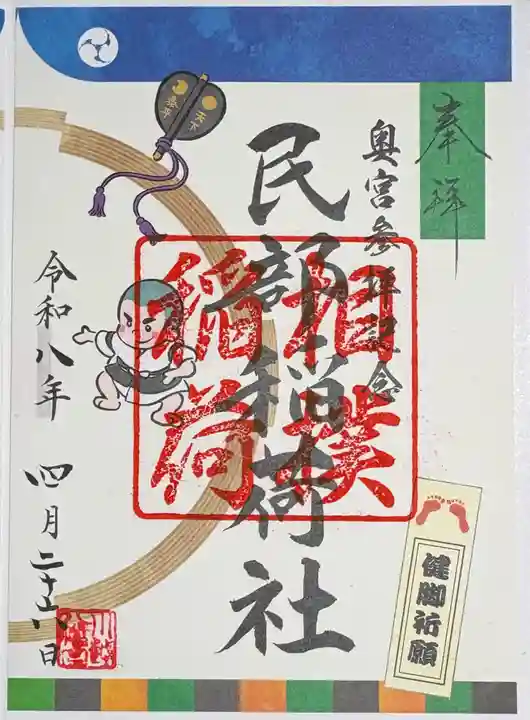 奉拝
奥宮参拝記念
民部稲荷社
相撲
稲荷
天下
泰平
令和八年
四月二十六日
健脚祈願